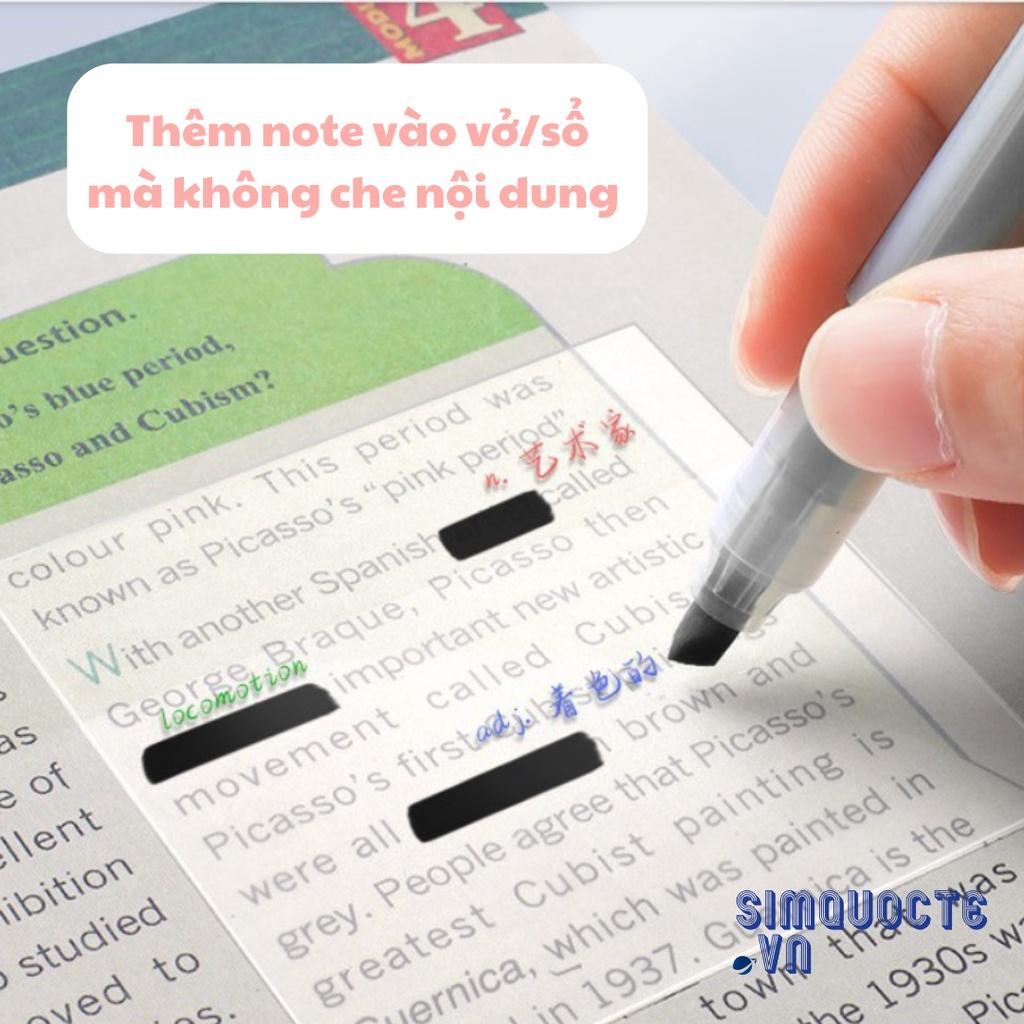 MODI
Thêm note vào vở/sổ
mà không che nội dung
uestion.
o's blue period,
asso and Cubism?
colour pink. This period was
known as Picasso's "pink period".
n. 艺术家
With another Spanish called
George Braque, Picasso then
locomotion important new artistic
movement called Cubis
adj. 着色的
Picasso's first
were all brown and
grey. People agree that Picasso's
greatest Cubist painting is
Guernica, which was painted in
in 1937. Guernica is the
as
e of
ellent
hibition
o studied
oved to
es.
town that was
the 1930s wa
Pic
SIMQUOCTE
.VN